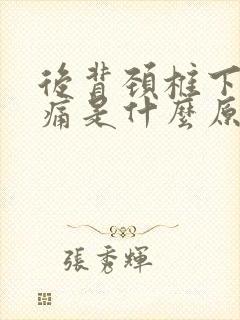 後背頚柱下
痛是什麼原
張秀輝